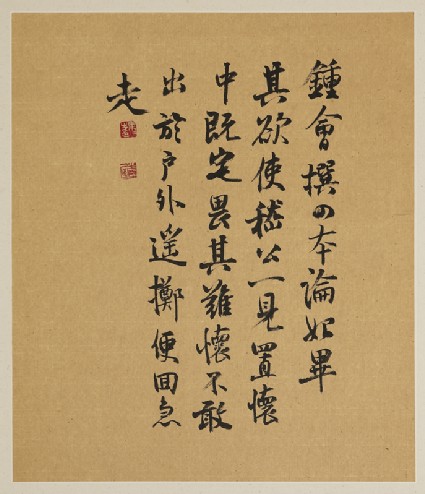 鍾會撰四本論始畢
其欲使嵇公一見置懷
中既定畏其難懷不敢
出於户外遥擲便回急
走